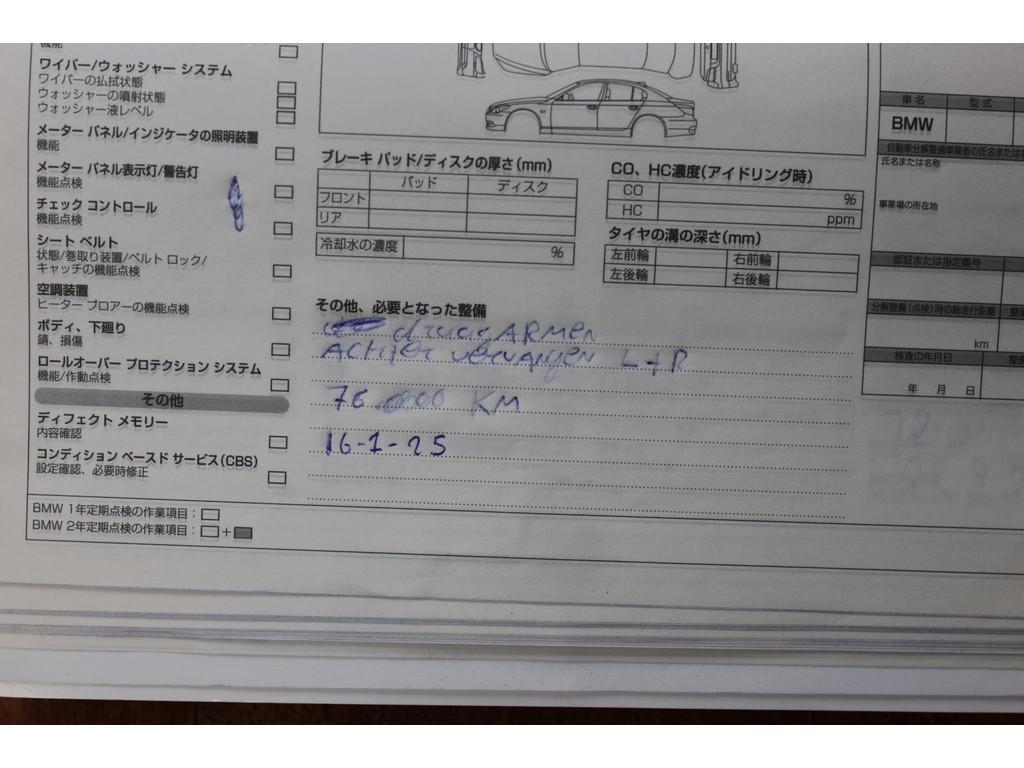 機能
ワイパー/ウォッシャー システム
ワイパーの払拭状態
ウォッシャーの噴射状態
ウォッシャー液レベル
メーター パネル/インジケータの照明装置
機能
メーター パネル表示灯/警告灯
機能点検
チェック コントロール
機能点検
シート ベルト
状態/巻取り装置/ベルト ロック/
キャッチの機能点検
空調装置
ヒーター ブロアーの機能点検
ボディ、下廻り
錆、損傷
ロールオーバー プロテクション システム
機能/作動点検
その他
ディフェクト メモリー
内容確認
コンディション ベースド サービス(CBS)
設定確認、必要時修正
BMW 1年定期点検の作業項目：
BMW 2年定期点検の作業項目： +
ブレーキ パッド/ディスクの厚さ(mm)
パッド ディスク
フロント
リア
冷却水の濃度 %
CO、HC濃度(アイドリング時)
CO %
HC ppm
タイヤの溝の深さ(mm)
左前輪 右前輪
左後輪 右後輪
その他、必要となった整備
draagARMEN
ACHTER vervangen L+R
76.000 KM
16-1-25
車名 型式
BMW
自動車分解整備事業者の氏名または
氏名または名称
事業場の所在地
認証または指定番号
分解整備(点検)時の総走行距離
km
検査の年月日
年 月 日